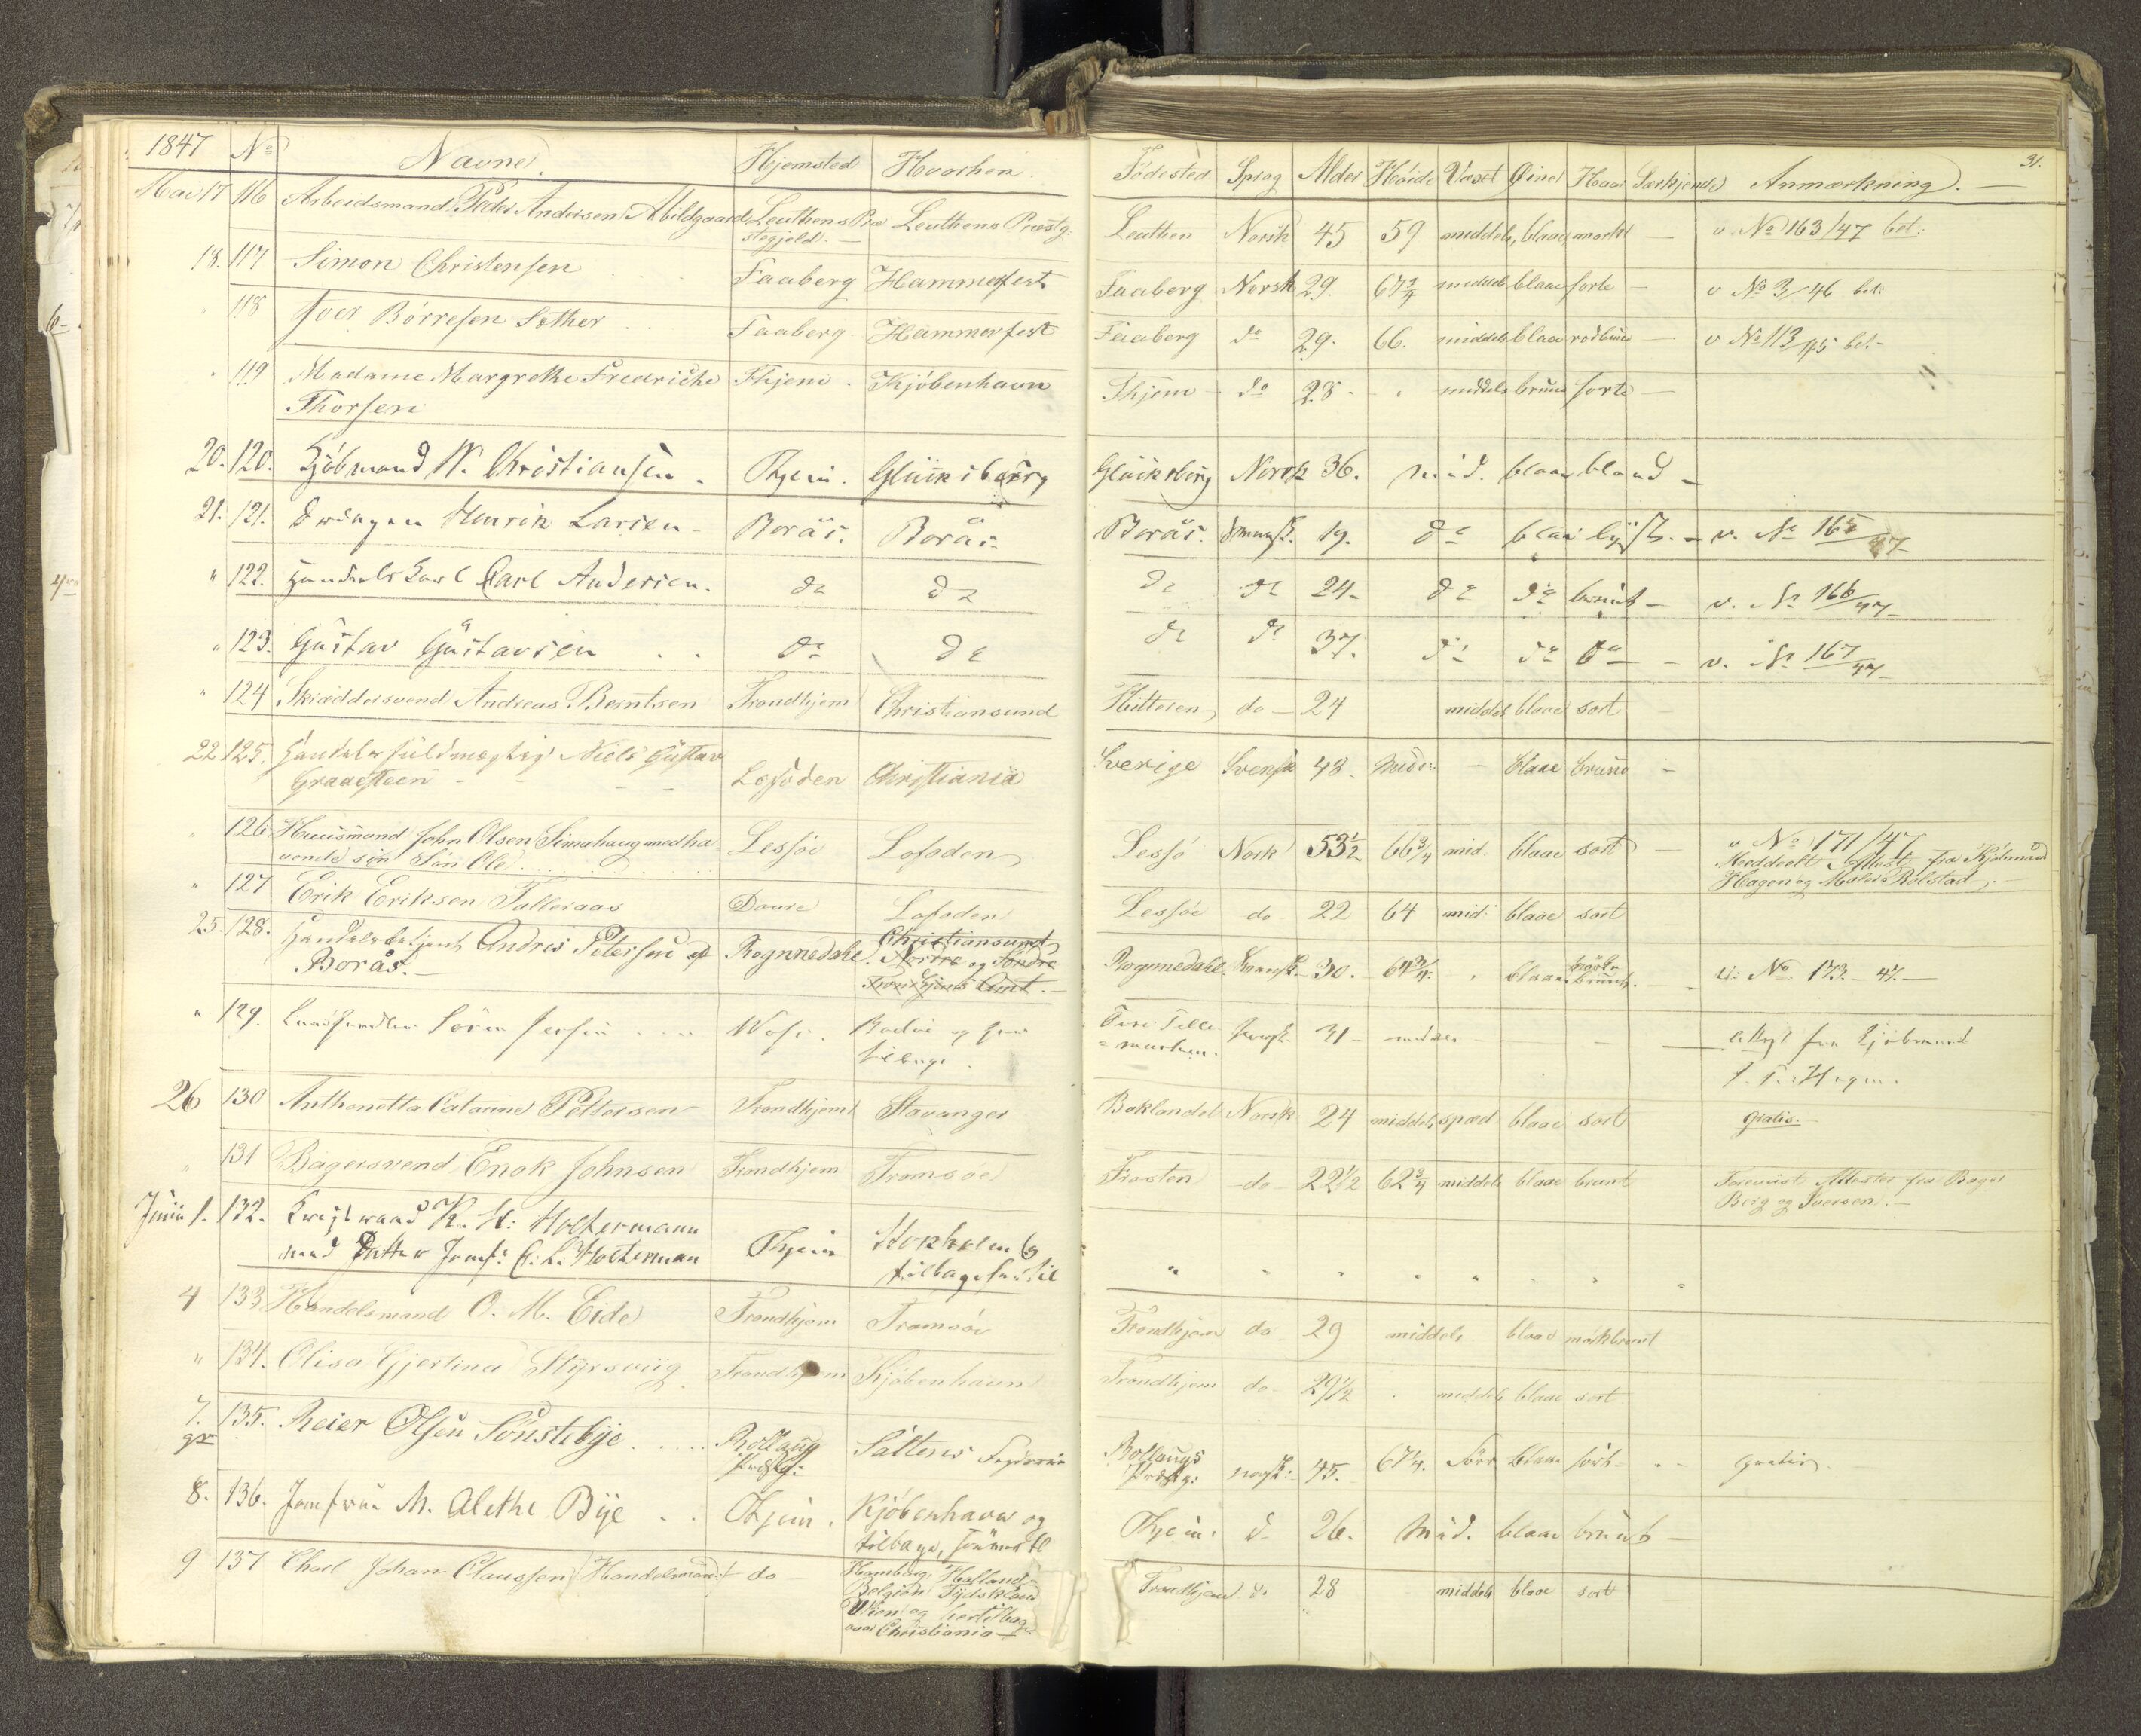 1847 No Navne. Hjemsted Hvorhen Födested Sprog Alder Höide Vext Öine Haar Særkjende Anmærkning. — 31.
Mai 17 116 Arbeidsmand Peder Andersen Abildgaard Leuthens Præ Leuthens Præstg: Leuthen Norsk 45 59 middels blaae mörkt — v No 163/47 bet:
stegjeld. —
18. 117 Simon Christensen Faaberg Hammerfest Faaberg Norsk 29. 67 3/4 middels blaae sorte — v No 3/46 bet:
118 Iver Börresen Sether Faaberg Hammerfest Faaberg do 29. 66. middels blaae rödbrune — v No 113/45 bet.-
119 Madame Margrethe Fredriche Thjem. Kjöbenhavn Thjem do 28 middels brune sorte —
Thorsen
20. 120. Kjöbmand W. Christiansen. Thjem. Glücksberg Glücksberg Norsk 36. mid. blaae blond —
21. 121. Drengen Henrik Larsen - Borås. Borås Borås. svensk. 19. do blaae lyst. - v. No 165/47
" 122. Handelskarl Carl Andersen. do do do do 24 - do do brunt - v. No 166/47
" 123. Gustav Gustavsen do do do do 37. do do do - v. No 167/47
" 124 Skræddersvend Andreas Berntsen Trondhjem Christiansund Hitteren do - 24 middels blaae sort
22 125. Handelsfuldmægtig Niels Gustav
Graaesteen - Lofoden Christiania Sverige Svensk 48. Mid: - blaae brune -
126 Huusmand John Olsen Simahaug medha- Lessöe Lofoden Lessö Norsk 53 1/2 66 3/4 mid. blaae sort — v No 171/47
vende sin Sön Ole Meddeelt Attest fra Kjöbmand
Hagen og Maler Rolstad. —
" 127 Erik Eriksen Talleraas Dovre Lofoden Lessöe do 22 64 mid: blaae sort
25. 128. Handelsbetjent Andres Petersen af Rognnedahl. Christiansund
Borås. — Nordre og Söndre Rognnedahl Svensk. 30. 64 3/4. " blaae. mörke brunt. v: No 173. - 47. —
Trondhjems Amt. —
" 129. Landhandler Sören Jersin Bodöe og her
tilbage. 31 - middels
26 130 Anthonetta Catarine Pettersen Trondhjem Stavanger Baklandet Norsk 24 middels spæd blaae sort gratis.
131 Bagersvend Enok Johnsen Trondhjem Tromsöe Frosten do 22 1/2 62 3/4 middels blaae brunt Foreviist Attester fra Bager
Berg og Iversen. —
Juni 1. 132. Krigsraad K. H: Holtermann
med Datter Jomf: C. L. Holterman Thjem Stokholm og
tilbage hertil " " " " " " " "
4 133 Handelsmand O. M. Eide Trondhjem Tromsöe Trondhjem do 29 middels blaae mörkbrunt
" 134. Olisa Gjertina Styrsviig Trondhjem Kjöbenhavn Trondhjem do- 29 1/2 middels blaae sort
7. 135. Reier Olsen Sönstebye Rollaug Saltens Fogderie Rollaugs norsk: 45. 67 1/4. Stor blaae sort - gratis.
Præstg: Præstg:
8. 136. Jomfrue M. Alethe Bye Thjem. Kjöbenhavn og Thjem: do 26. Mid. blaae brunt —
tilbage,
9 137 Charl Johan Claussen (Handelsmand) do - Hamburg, Holland Trondhjem do 28 middels blaae sort
Belgien Tydskland
Wien og hertilbage
over Christiania